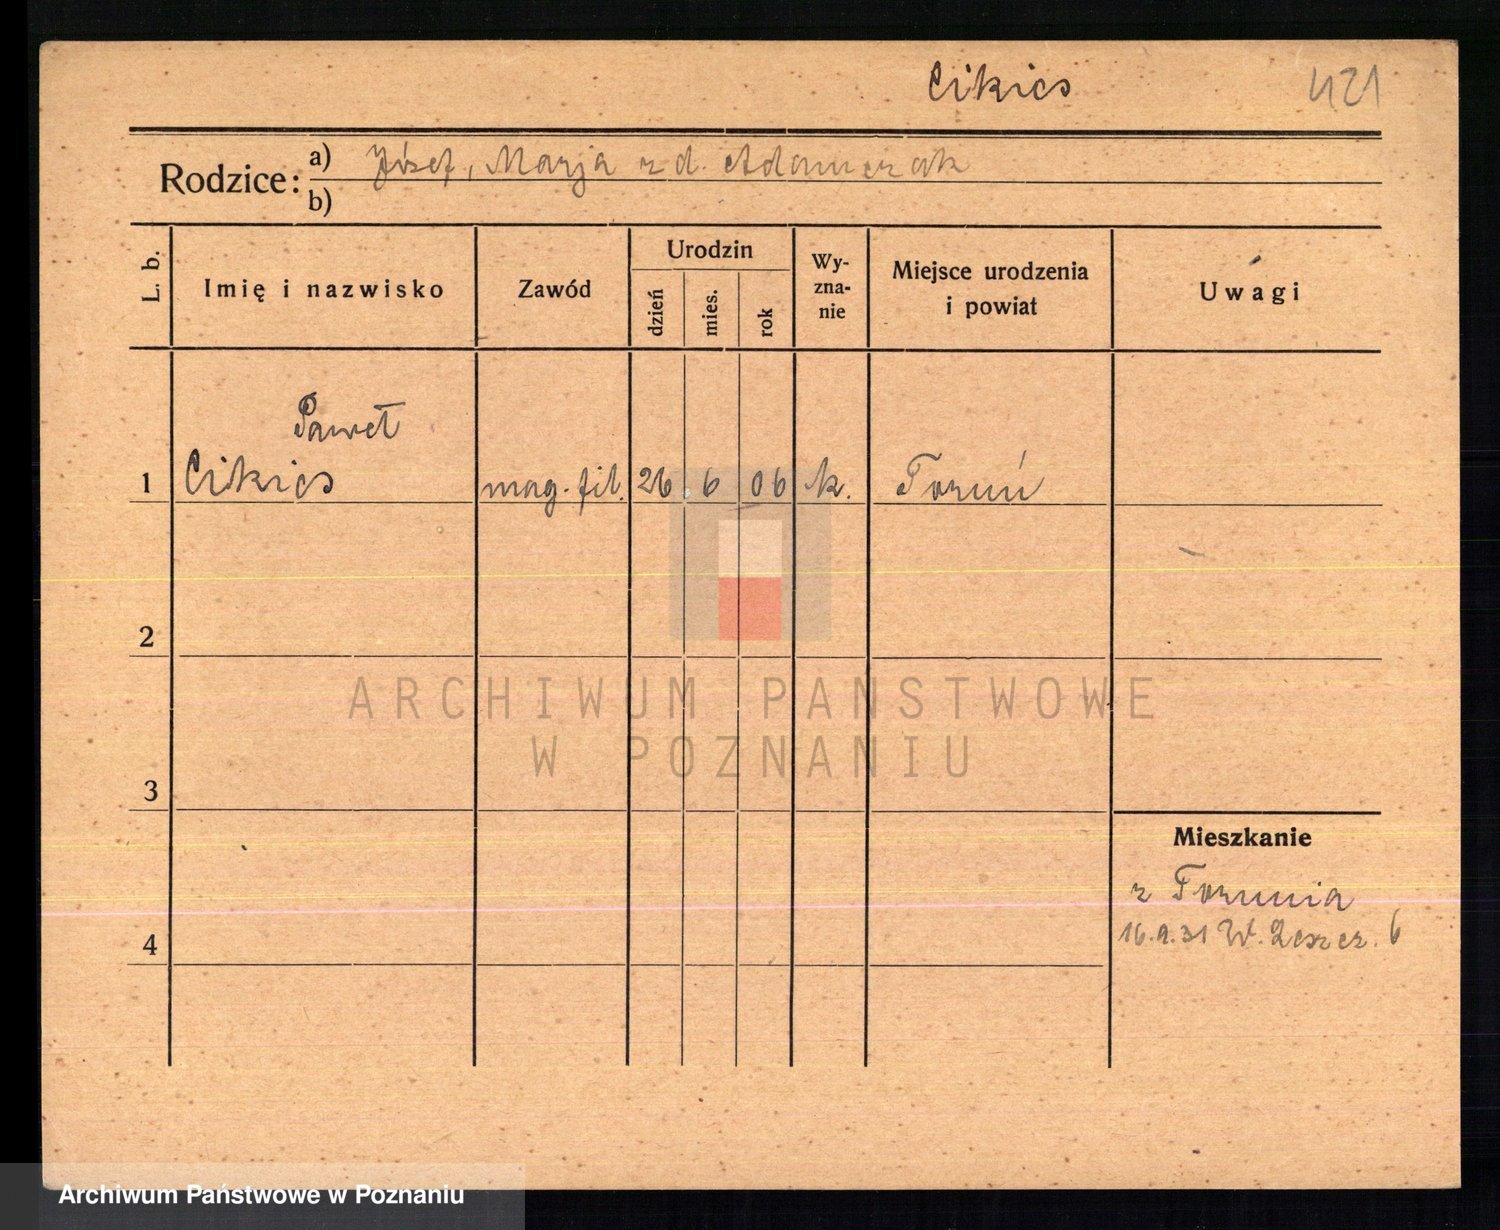 Cikics 421
Rodzice: a) Józef, Marja z d. Adamczak
b)
L. b.
Imię i nazwisko
Zawód
Urodzin
dzień
mies.
rok
Wy-
zna-
nie
Miejsce urodzenia
i powiat
Uwagi
Paweł
1 Cikics mag. fil. 26. 6 06 k. Toruń
2
ARCHIWUM PANSTWOWE
W POZNANIU
3
Mieszkanie
z Torunia
16.9.31 W. Leszcz. 6
4
Archiwum Państwowe w Poznaniu